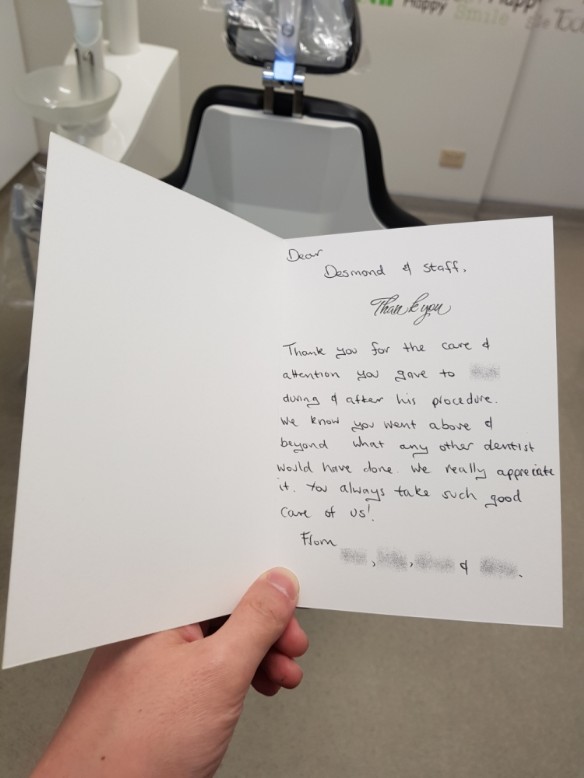 Happy
Smile
Dear
Desmond & staff.
Thank you
Thank you for the care &
attention you gave to
during & after his procedure.
We know you went above &
beyond what any other dentist
would have done. We really appreciate
it. You always take such good
care of us!
From
, , & .